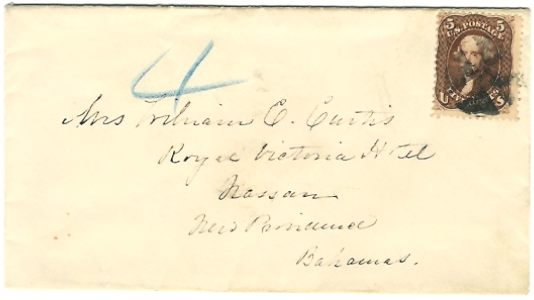 5 5
U.S. POSTAGE
4
Mrs William C. Curtis
Royal Victoria Hotel
Nassau
New Providence
Bahamas.